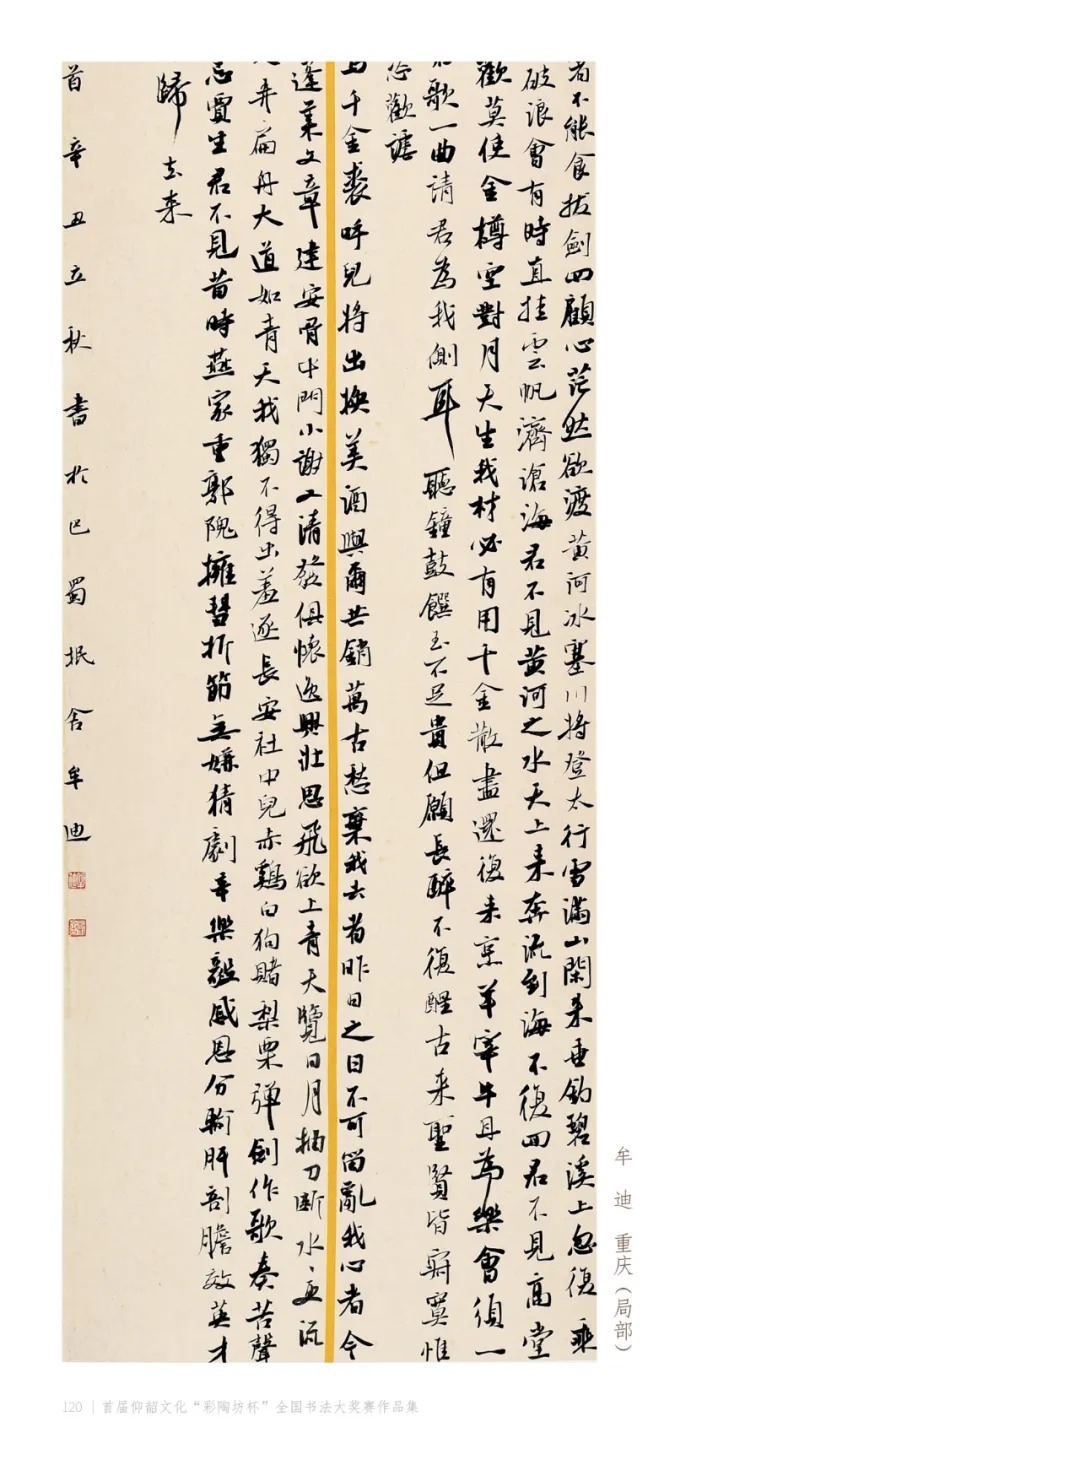 者不能食拔劍四顧心茫然欲渡黃河冰塞川將登太行雪滿山閑來垂釣碧溪上忽復乘
破浪會有時直挂雲帆濟滄海君不見黃河之水天上來奔流到海不復回君不見高堂
歡莫使金樽空對月天生我材必有用千金散盡還復來烹羊宰牛且為樂會須一
歌一曲請君為我側耳聽鐘鼓饌玉不足貴但願長醉不復醒古來聖賢皆寂寞惟
恣歡謔
馬千金裘呼兒將出換美酒與爾共銷萬古愁棄我去者昨日之日不可留亂我心者今
蓬萊文章建安骨中間小謝又清發俱懷逸興壯思飛欲上青天覽日月抽刀斷水水更流
弄扁舟大道如青天我獨不得出羞逐長安社中兒赤鷄白狗賭梨栗彈劍作歌奏苦聲
忌賈生君不見昔時燕家重郭隗擁篲折節無嫌猜劇辛樂毅感恩分輸肝剖膽效英才
歸去來
首辛丑立秋書於巴蜀垊舍牟迪
牟迪 重庆（局部）
120 | 首届仰韶文化“彩陶坊杯”全国书法大奖赛作品集